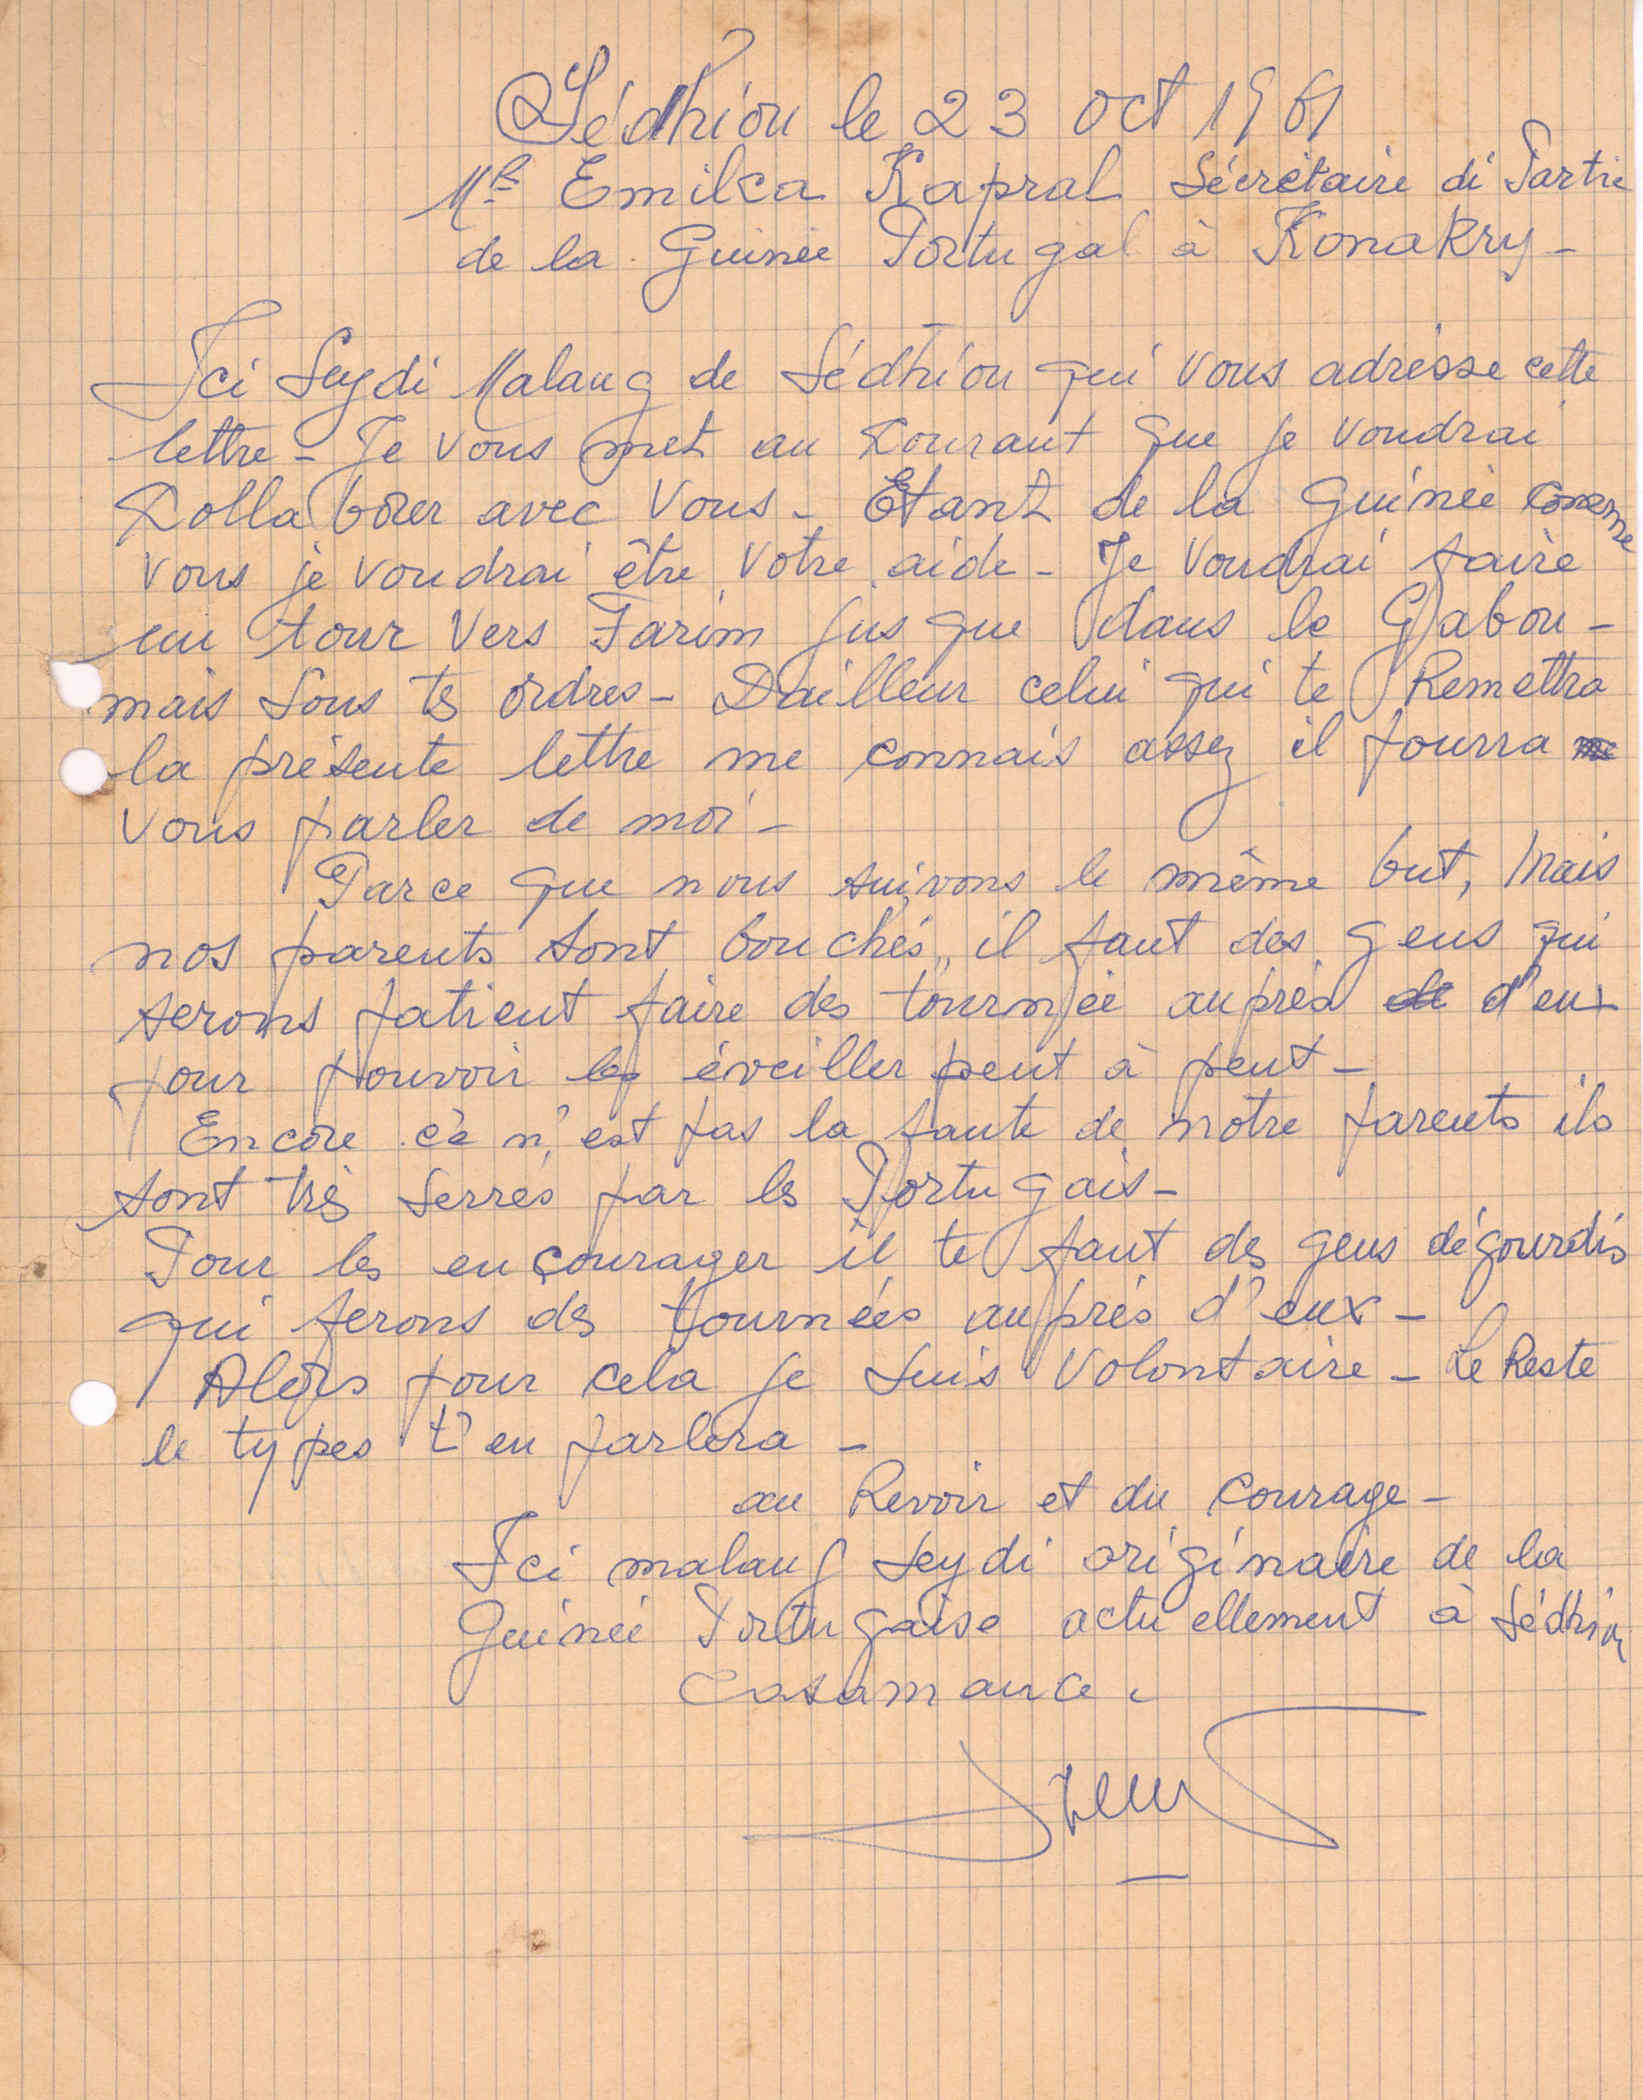 Sédhiou le 23 oct 1961
Mr Emilca Kapral Sécrétaire di Partie
de la Guinée Portugal à Konakry -
Ici Seydi Malang de Sédhiou qui vous adrésse cette
lettre - Je vous met au Kourant que je voudrai
Kollaborer avec vous - Etant de la Guinée comme
vous je voudrai être votre aide - Je voudrai faire
un tour vers Farim jus que dans le Gabou -
mais sous ts ordres - Dailleur celui qui te Remettra
la présente lettre me connais assez il pourra
vous parler de moi -
Parce que nous suivons le même but, mais
nos parents sont bouchés, il faut des gens qui
serons patient faire des tournée auprès d'eux
pour pouvoir les éveiller peut à peut -
Encore ce n'est pas la faute de notre parents ils
sont très serrés par ls Portugais -
Pour les encourager il te faut des gens dégourdis
qui ferons ds tournées auprès d'eux -
Alors pour cela je suis volontaire - Le Reste
le types t'en parlera -
au Revoir et du courage -
Ici malang Seydi originaire de la
Guinée Portugaise actuellement à Sédhiou
Casamance.